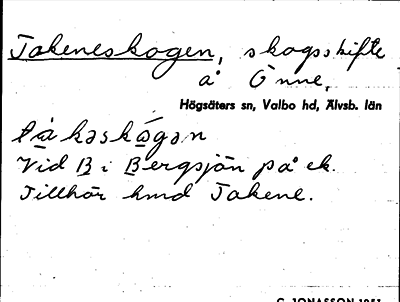 Takeneskogen, skogsskifte
å Önne,
Högsäters sn, Valbo hd, Älvsb. län
tàkəskógən
Vid B i Bergsjön på ek.
Tillhör hmd Takene.
C. JONASSON 1951